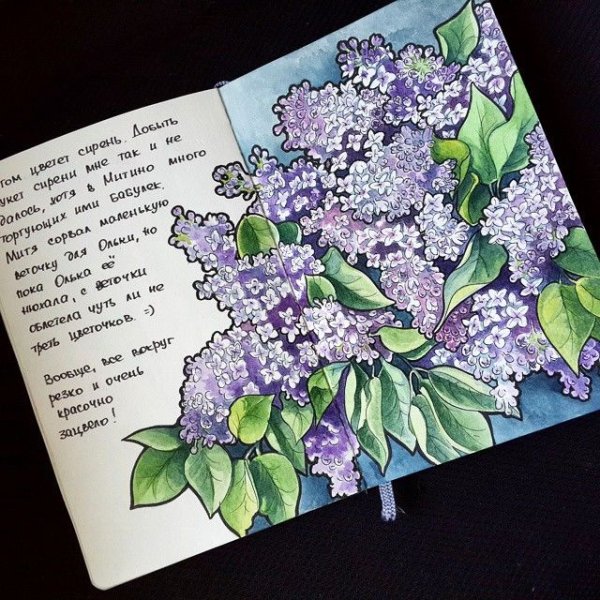 том цветет сирень. Добыть
укет сирени мне так и не
далось, хотя в Митино много
торгующих ими бабулек.
Митя сорвал маленькую
веточку для Ольки, но
пока Олька её
нюхала, с веточки
облетела чуть ли не
треть цветочков. =)
Вообще, все вокруг
резко и очень
красочно
зацвело!